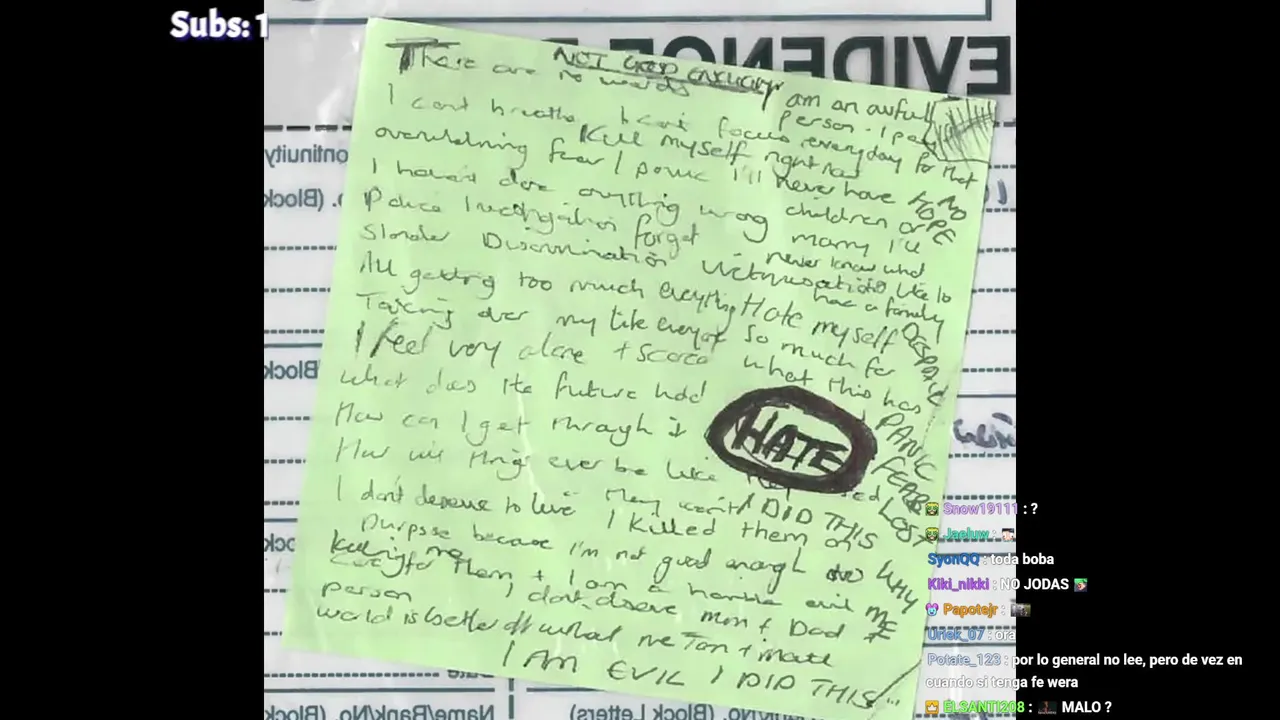 Subs: 1
EVIDENCE
There are no words
NOT GOOD ENOUGH
I am an awful
person. I pay
everyday for that
I cant breathe I cant focus
Kill myself right now
overwhelming fear / panic
I'll never have
children or
marry I'll
never know what
like to
have a family
NO
HOPE
I haven't done anything wrong
Police Investigation forget
Slander Discrimination Victimisation
All getting too much everything
Hate myself
so much for
what this has
DESPAIR
PANIC
FEAR
Taking over my life
I feel very alone + scared
what does the future hold
How can I get through it
HATE
How will things ever be like
I don't deserve to live
I DID THIS
WHY
ME
I killed them on
purpose because I'm not good enough to
care for them + I am a horrible evil
person
Killing me
I don't deserve mum + Dad
world is better off without me
I AM EVIL I DID THIS
Name/Rank/No. (Block
(Block Letters)
Snow19111 : ?
Jaeluw :
SyonQQ : toda boba
Kiki_nikki : NO JODAS
Papotejr :
Uriek_07 : ora
Potate_123 : por lo general no lee, pero de vez en
cuando si tenga fe wera
ELSANTI208 : MALO ?